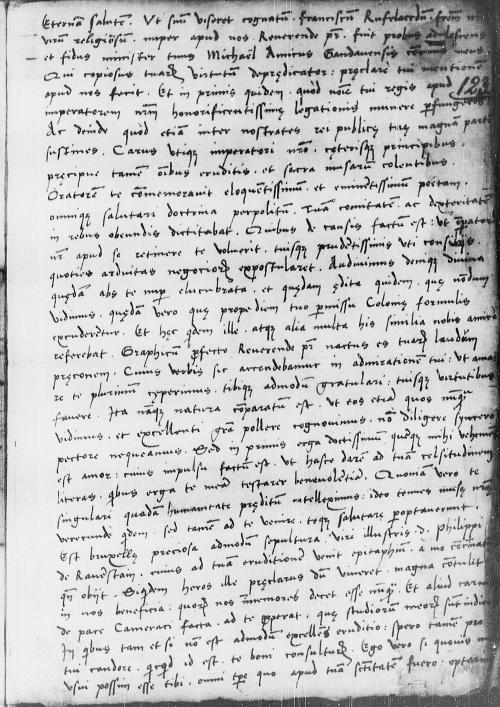 Eternam salutem. Ut suum viseret cognatum, Franciscum Rufelaerdum, frem m
virum religiosum, nuper apud nos, Reverende pr. fuit probus adolescens
et fidus minister tuus Michaël Amicus Gandavensis meus.
Qui copiosus tuarum virtutum depredicator: preclare tui mentionem
apud nos fecit. Et in primis quidem, quod nomine tui regis apud 123
imperatorem nrm honorificentissime legationis munere perfungeris
Ac deinde quod etiam inter nostrates rei publice tue magnam parte
sustines. Carus utique imperatori nro, ceterisque principibus.
precipue tamen oibus eruditis, et sacra musarum colentibus.
Oratorem te commemoravit eloquentissimum, et eminentissimum poetam.
omnique salutari doctrina perpolitum. Tuam comitatem, ac dexteritatem
in rebus obeundis dictitabat. Quibus de causis factum est: ut imperator
nr apud se retinere te voluerit, tuisque prudentissimis uti consiliis
quoties arduitas negociorum expostularet. Audivimus denique divina
quedam abs te nup elucubrata, et quedam edita quidem, que nondum
vidimus, quedam vero que propediem tuo permissu Colonie formulis
excuderentur. Et hec quidem ille, atque alia multa his similia nobis amice
referebat. Graphicum profecto Reverende pr nactus es tuarum laudum
preconem. Cuius verbis sic accendebamur in admirationem tui: ut ama
re te plurimum ceperimus, tibique admodum gratulari: tuisque virtutibus
favere. Ita namque natura comparatum est, ut eos etiam quos nunquam
vidimus, et excellenti gra pollere cognovimus, non diligere syncero
pectore nequeamus. Sed in primis erga doctissimum quemque mihi vehemens
est amor: cuius impulsu factum est, ut hasce darem ad tuam celsitudinem
literas, quibus erga te meam testarer benevolentiam. Quoniam vero te
singulari quadam humanitate preditum intelleximus: ideo tenues muse nre
verecunde quidem, sed tamen ad te venire, teque salutare peroptaverunt.
Est bruxelle preciosa admodum sepultura, viri illustris, D. Philippi
de Ravestam, cuius ad tuam eruditionem venit epitaphium, a me
quum obijt. Siquidem heros ille preclarus dum viveret, magna contulit
in nos beneficia: quorum nos immemores decet esse nunquam. Et aliud carmen
de pace Cameraci facta, ad te properat, que studiorum meorum sunt indicia
In quibus tam et si non est admodum excellens eruditio: spero tamen pro
tui candore, quicquid id est, te boni consulturum. Ego vero si quovis m
usui possim esse tibi, omni tpe quo apud tuam serenitatem fuero: optarim